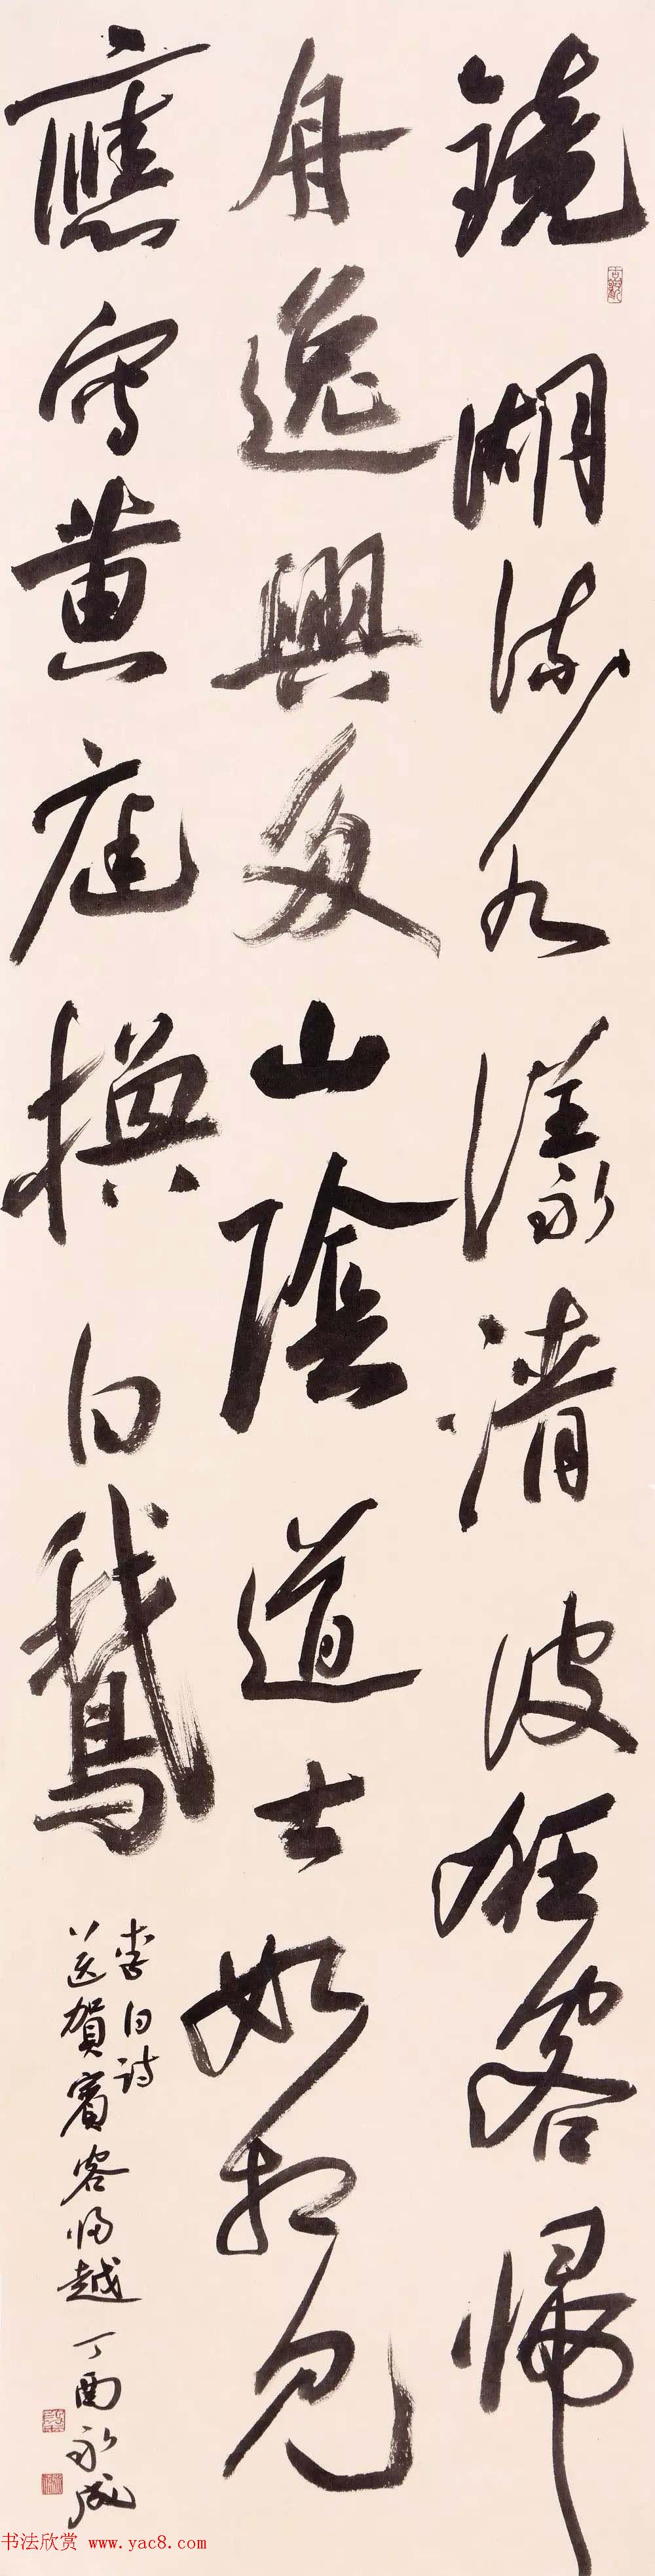 鏡湖流水漾清波狂客歸
舟逸興多山陰道士如相見
應寫黃庭換白鵝
李白詩
送賀賓客歸越 丁酉 永成
书法欣赏 www.yac8.com